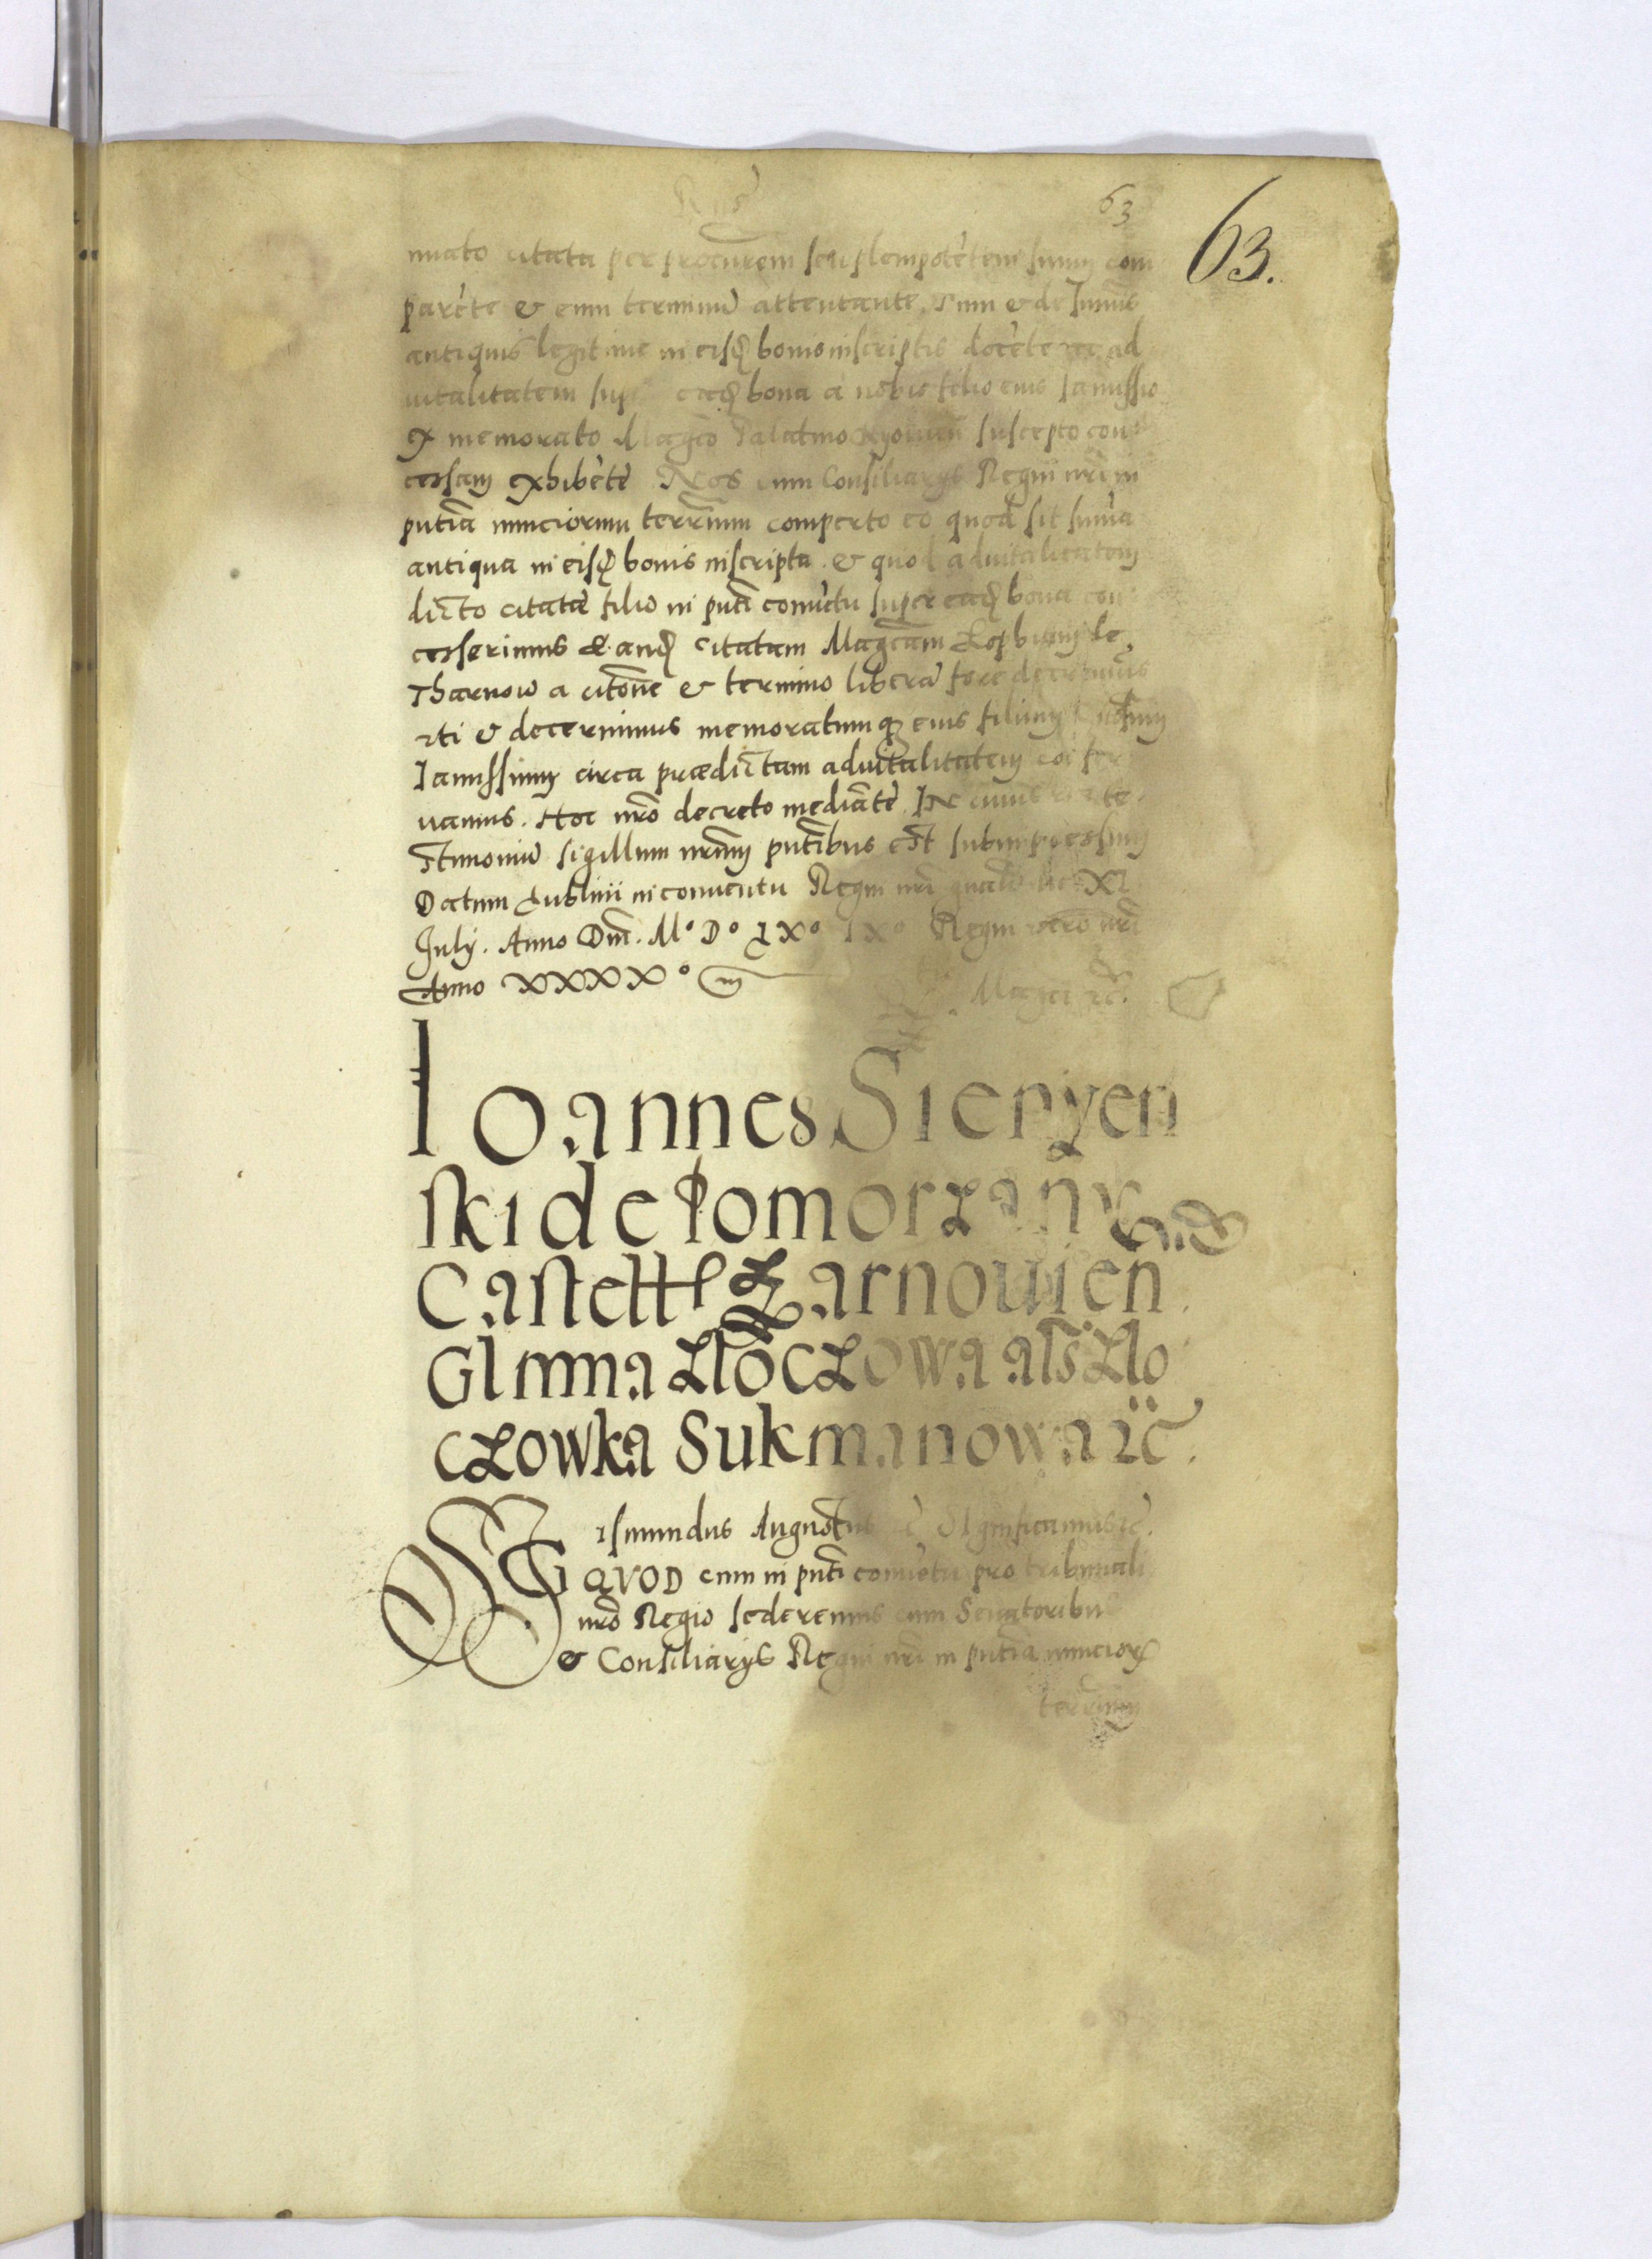 63
63.
nuato citata per procurem seu plempotetem suum com
parete & eum terminu attentante. Tum & de summis
antiquis legitime in eisd bonis inscriptis docete et ad
vitalitatem sup eadem bona a nobis filio eius Ianussio
ex memorato Magco Palatino Kyoviens suscepto con
cessam exhibete Nos cum Consiliarys Regni nri in
putia nunciorum terrarum comperto eo quod sit suma
antiqua in eisd bonis inscripta & quod advitalitatem
dicto citatae filio in puti conuetu super ead bona con
cesserimus eand citatam Magcam Zophiam de
Tharnow a citone & termino libera fore decrevimus
uti & decernimus memoratumq eius filium
Ianussium circa praedictam advitalitatem conser
vamus. Hoc nro decreto mediate. In cuius rei te
stimoniu sigillum nrum putibus est subimpressum
Datum Lublini in conventu Regni nri gnali die XI
July. Anno Dni. Mº Dº LXº IXº Regni vero nri
Anno XXXXº
Magci rc.
Ioannes Sienyen
ski de Pomorzany
Castell Zarnovien.
Glinna Zloczowa als Zlo
czowka Sukmanowa rc.
Sigismundus Augustus rc Significamus rc.
QVOD cum in puti conuetu pro tribunali
nro Regio sederemus cum Senatoribus
& Consiliarys Regni nri in putia nuncior
terrarum